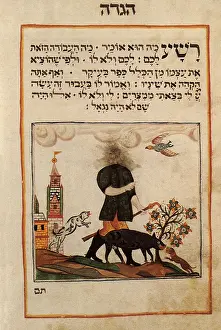 הגדה
רשע מה הוא אומר · מה העבודה הזאת
לכם : לכם ולא לו · ולפי שהוציא
את עצמו מן הכלל כפר בעיקר · ואף אתה
הקהה את שיניו ואמור לו בעבור זה עשה
יי לי בצאתי ממצרים : לי ולא לו · אילו היה
שם לא היה נגאל :
תם